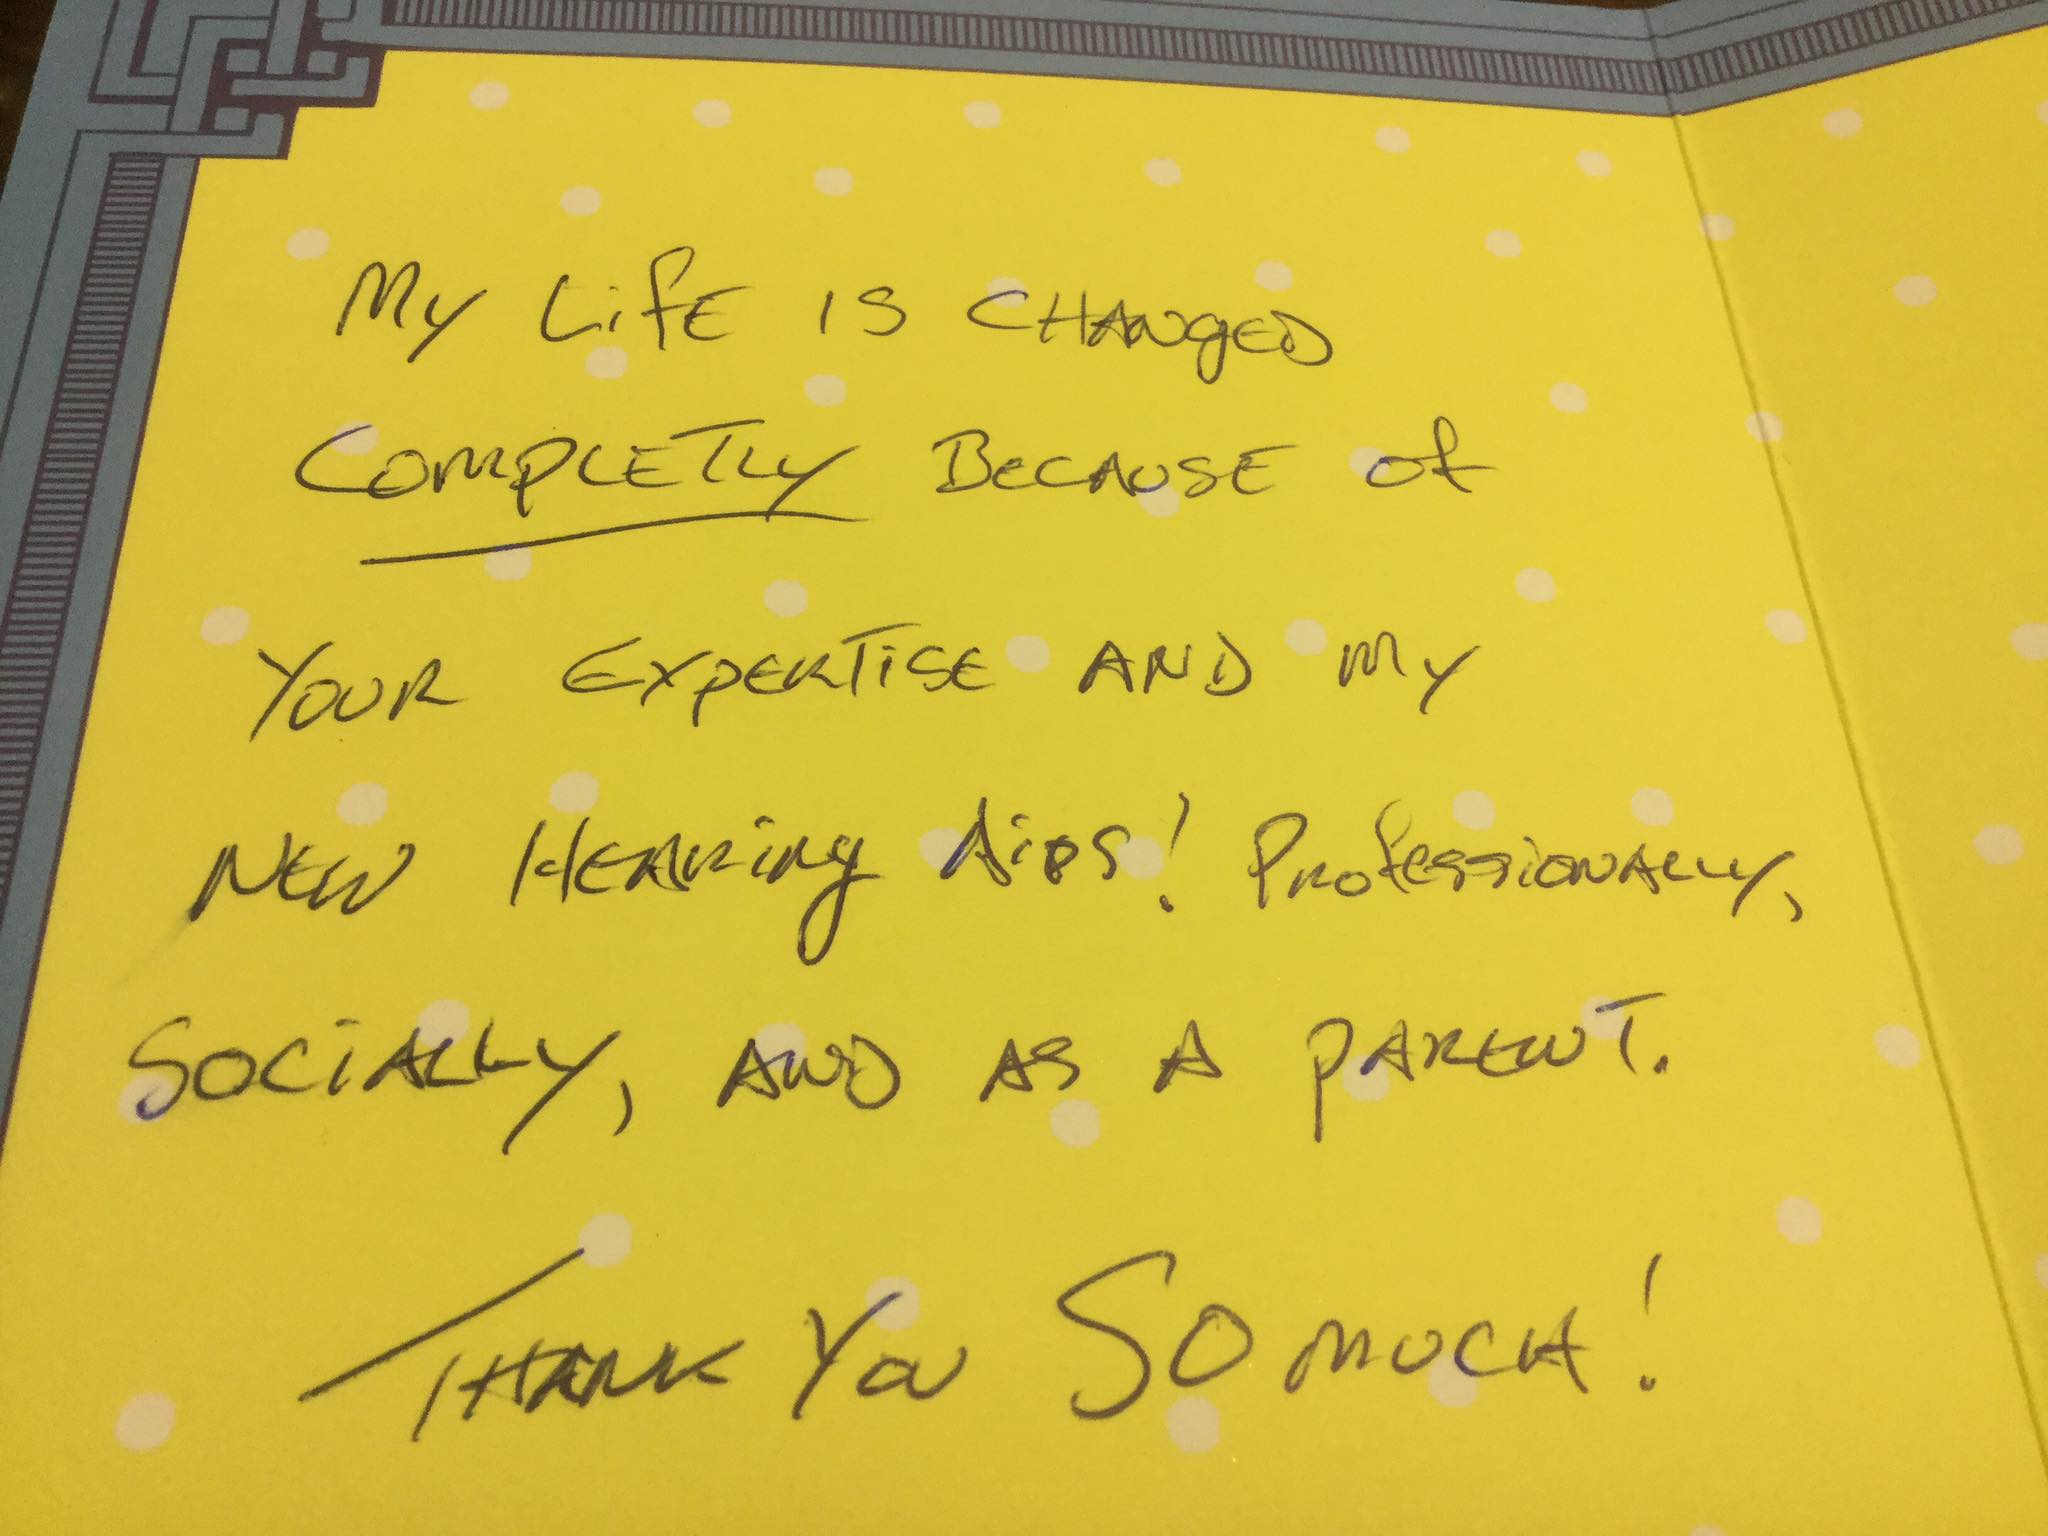 My Life is CHANgED
COMPLETLY BECAUSE of
YOUR EXPERTiSE AND My
NEW HEARiNg AiDS! PROfessiONALLY,
SOCiALLY, AND AS A PARENT.
THANK YOU SO MUCH!